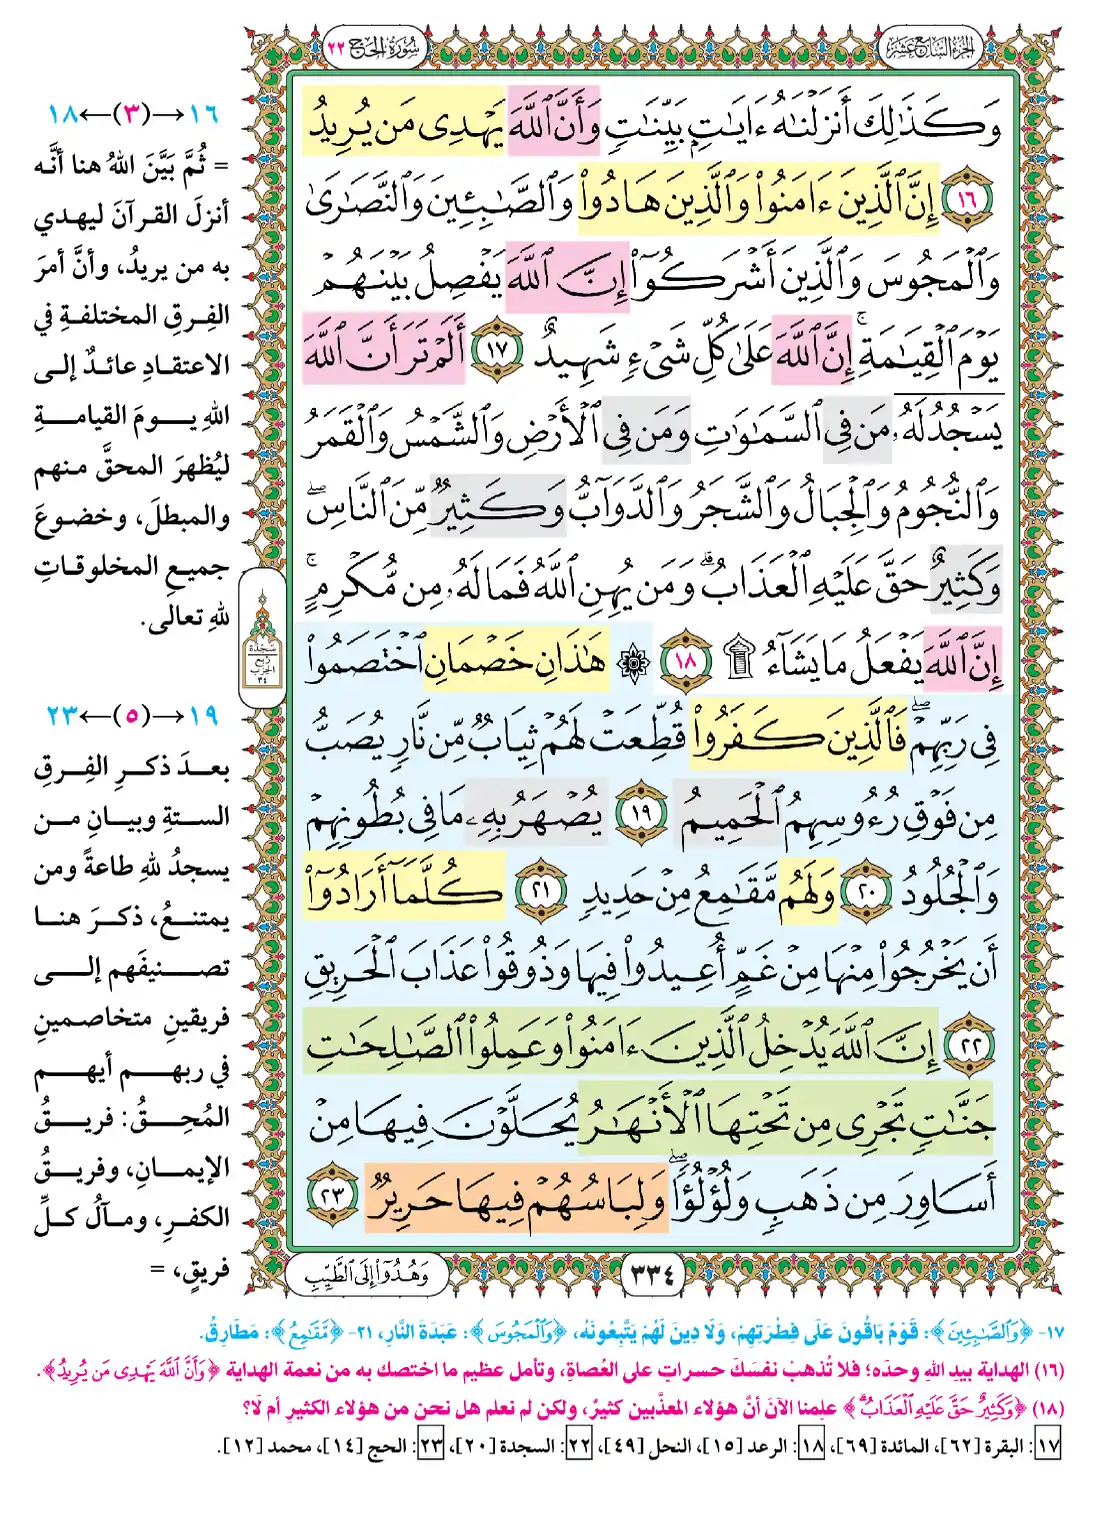 الجزء السابع عشر
سورة الحج ٢٢
وَكَذَٰلِكَ أَنزَلْنَٰهُ ءَايَٰتٍۭ بَيِّنَٰتٍ وَأَنَّ ٱللَّهَ يَهْدِى مَن يُرِيدُ
١٦ إِنَّ ٱلَّذِينَ ءَامَنُوا۟ وَٱلَّذِينَ هَادُوا۟ وَٱلصَّٰبِـِٔينَ وَٱلنَّصَٰرَىٰ
وَٱلْمَجُوسَ وَٱلَّذِينَ أَشْرَكُوٓا۟ إِنَّ ٱللَّهَ يَفْصِلُ بَيْنَهُمْ
يَوْمَ ٱلْقِيَٰمَةِ ۚ إِنَّ ٱللَّهَ عَلَىٰ كُلِّ شَىْءٍ شَهِيدٌ ١٧ أَلَمْ تَرَ أَنَّ ٱللَّهَ
يَسْجُدُ لَهُۥ مَن فِى ٱلسَّمَٰوَٰتِ وَمَن فِى ٱلْأَرْضِ وَٱلشَّمْسُ وَٱلْقَمَرُ
وَٱلنُّجُومُ وَٱلْجِبَالُ وَٱلشَّجَرُ وَٱلدَّوَآبُّ وَكَثِيرٌ مِّنَ ٱلنَّاسِ ۖ
وَكَثِيرٌ حَقَّ عَلَيْهِ ٱلْعَذَابُ ۗ وَمَن يُهِنِ ٱللَّهُ فَمَا لَهُۥ مِن مُّكْرِمٍ ۚ
إِنَّ ٱللَّهَ يَفْعَلُ مَا يَشَآءُ ۩ ١٨ ۞ هَٰذَانِ خَصْمَانِ ٱخْتَصَمُوا۟
فِى رَبِّهِمْ ۖ فَٱلَّذِينَ كَفَرُوا۟ قُطِّعَتْ لَهُمْ ثِيَابٌ مِّن نَّارٍ يُصَبُّ
مِن فَوْقِ رُءُوسِهِمُ ٱلْحَمِيمُ ١٩ يُصْهَرُ بِهِۦ مَا فِى بُطُونِهِمْ
وَٱلْجُلُودُ ٢٠ وَلَهُم مَّقَٰمِعُ مِنْ حَدِيدٍ ٢١ كُلَّمَآ أَرَادُوٓا۟
أَن يَخْرُجُوا۟ مِنْهَا مِنْ غَمٍّ أُعِيدُوا۟ فِيهَا وَذُوقُوا۟ عَذَابَ ٱلْحَرِيقِ
٢٢ إِنَّ ٱللَّهَ يُدْخِلُ ٱلَّذِينَ ءَامَنُوا۟ وَعَمِلُوا۟ ٱلصَّٰلِحَٰتِ
جَنَّٰتٍ تَجْرِى مِن تَحْتِهَا ٱلْأَنْهَٰرُ يُحَلَّوْنَ فِيهَا مِنْ
أَسَاوِرَ مِن ذَهَبٍ وَلُؤْلُؤًا ۖ وَلِبَاسُهُمْ فِيهَا حَرِيرٌ ٢٣
٣٣٤
وَهُدُوٓا۟ إِلَى ٱلطَّيِّبِ
سجدة
ربع
الحزب
٣٤
١٦→(٣)←١٨
= ثُمَّ بَيَّنَ اللهُ هنا أنَّه
أنزلَ القرآنَ ليهدي
به من يريدُ، وأنَّ أمرَ
الفِرقِ المختلفةِ في
الاعتقادِ عائدٌ إلى
اللهِ يومَ القيامةِ
ليُظهرَ المحقَّ منهم
والمبطلَ، وخضوعَ
جميعِ المخلوقاتِ
للهِ تعالى.
١٩→(٥)←٢٣
بعدَ ذكرِ الفِرقِ
الستةِ وبيانِ من
يسجدُ للهِ طاعةً ومن
يمتنعُ، ذكرَ هنا
تصنيفَهم إلى
فريقينِ متخاصمينِ
في ربهم أيهم
المُحِقُّ: فريقُ
الإيمانِ، وفريقُ
الكفرِ، ومآلُ كلِّ
فريقٍ، =
١٧- ﴿وَٱلصَّٰبِـِٔينَ﴾: قَوْمٌ بَاقُونَ عَلَى فِطْرَتِهِمْ، وَلَا دِينَ لَهُمْ يَتَّبِعُونَهُ، ﴿وَٱلْمَجُوسَ﴾: عَبَدَةَ النَّارِ، ٢١- ﴿مَّقَٰمِعُ﴾: مَطَارِقُ.
(١٦) الهداية بيدِ اللهِ وحدَه؛ فلا تُذهبْ نفسَكَ حسراتٍ على العُصاةِ، وتأمل عظيم ما اختصك به من نعمة الهداية ﴿وَأَنَّ ٱللَّهَ يَهْدِى مَن يُرِيدُ﴾.
(١٨) ﴿وَكَثِيرٌ حَقَّ عَلَيْهِ ٱلْعَذَابُ ۗ﴾ علِمنا الآنَ أنَّ هؤلاء المعذَّبين كثيرٌ، ولكن لم نعلم هل نحن من هؤلاء الكثيرِ أم لَا؟
١٧: البقرة [٦٢]، المائدة [٦٩]، ١٨: الرعد [١٥]، النحل [٤٩]، ٢٢: السجدة [٢٠]، ٢٣: الحج [١٤]، محمد [١٢].